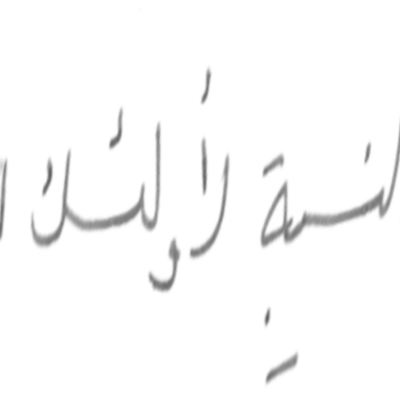 لنسبة لأولئك